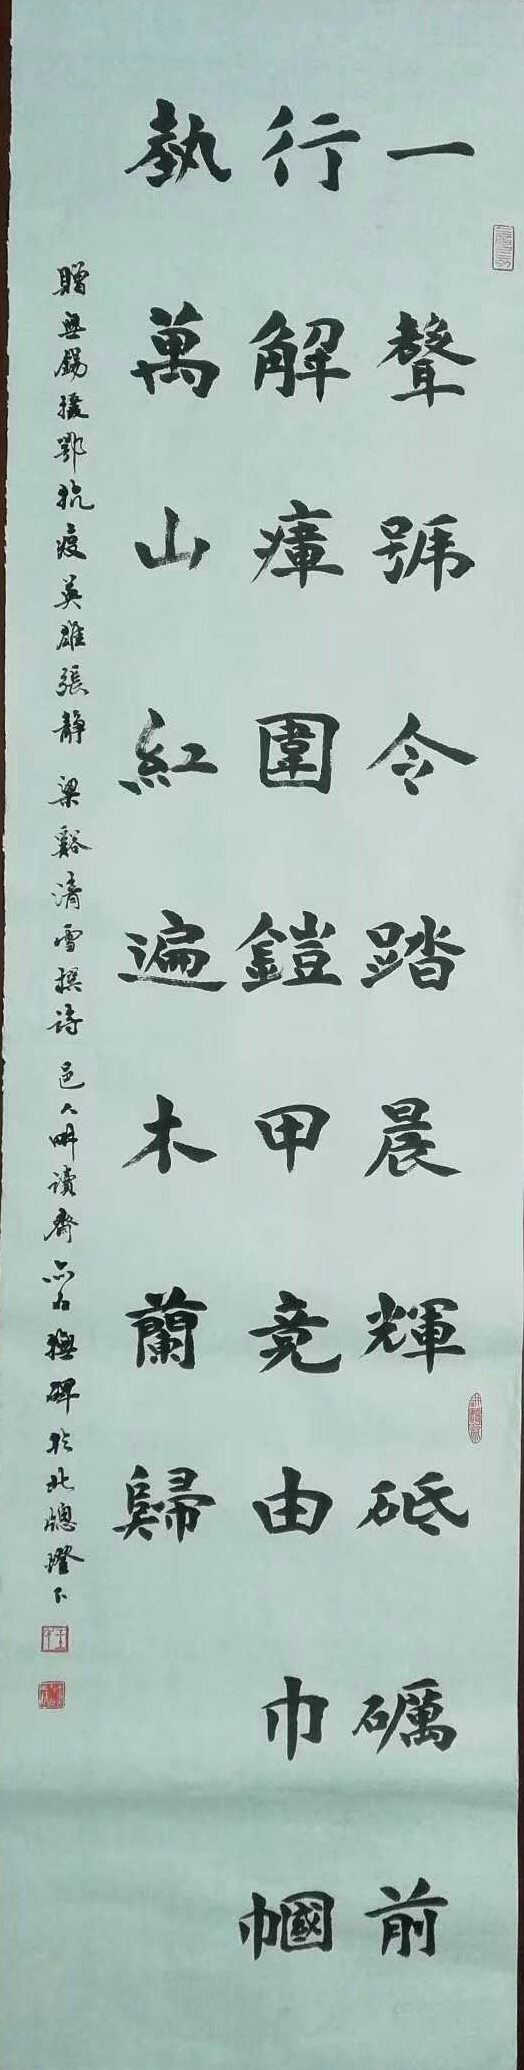 一聲號令踏晨輝砥礪前
行解瘴圍鎧甲竞由巾幗
執萬山紅遍木蘭歸
贈無錫援鄂抗疫英雄張靜 梁谿清雪撰詩 邑人畊讀齋
碑於北窓燈下